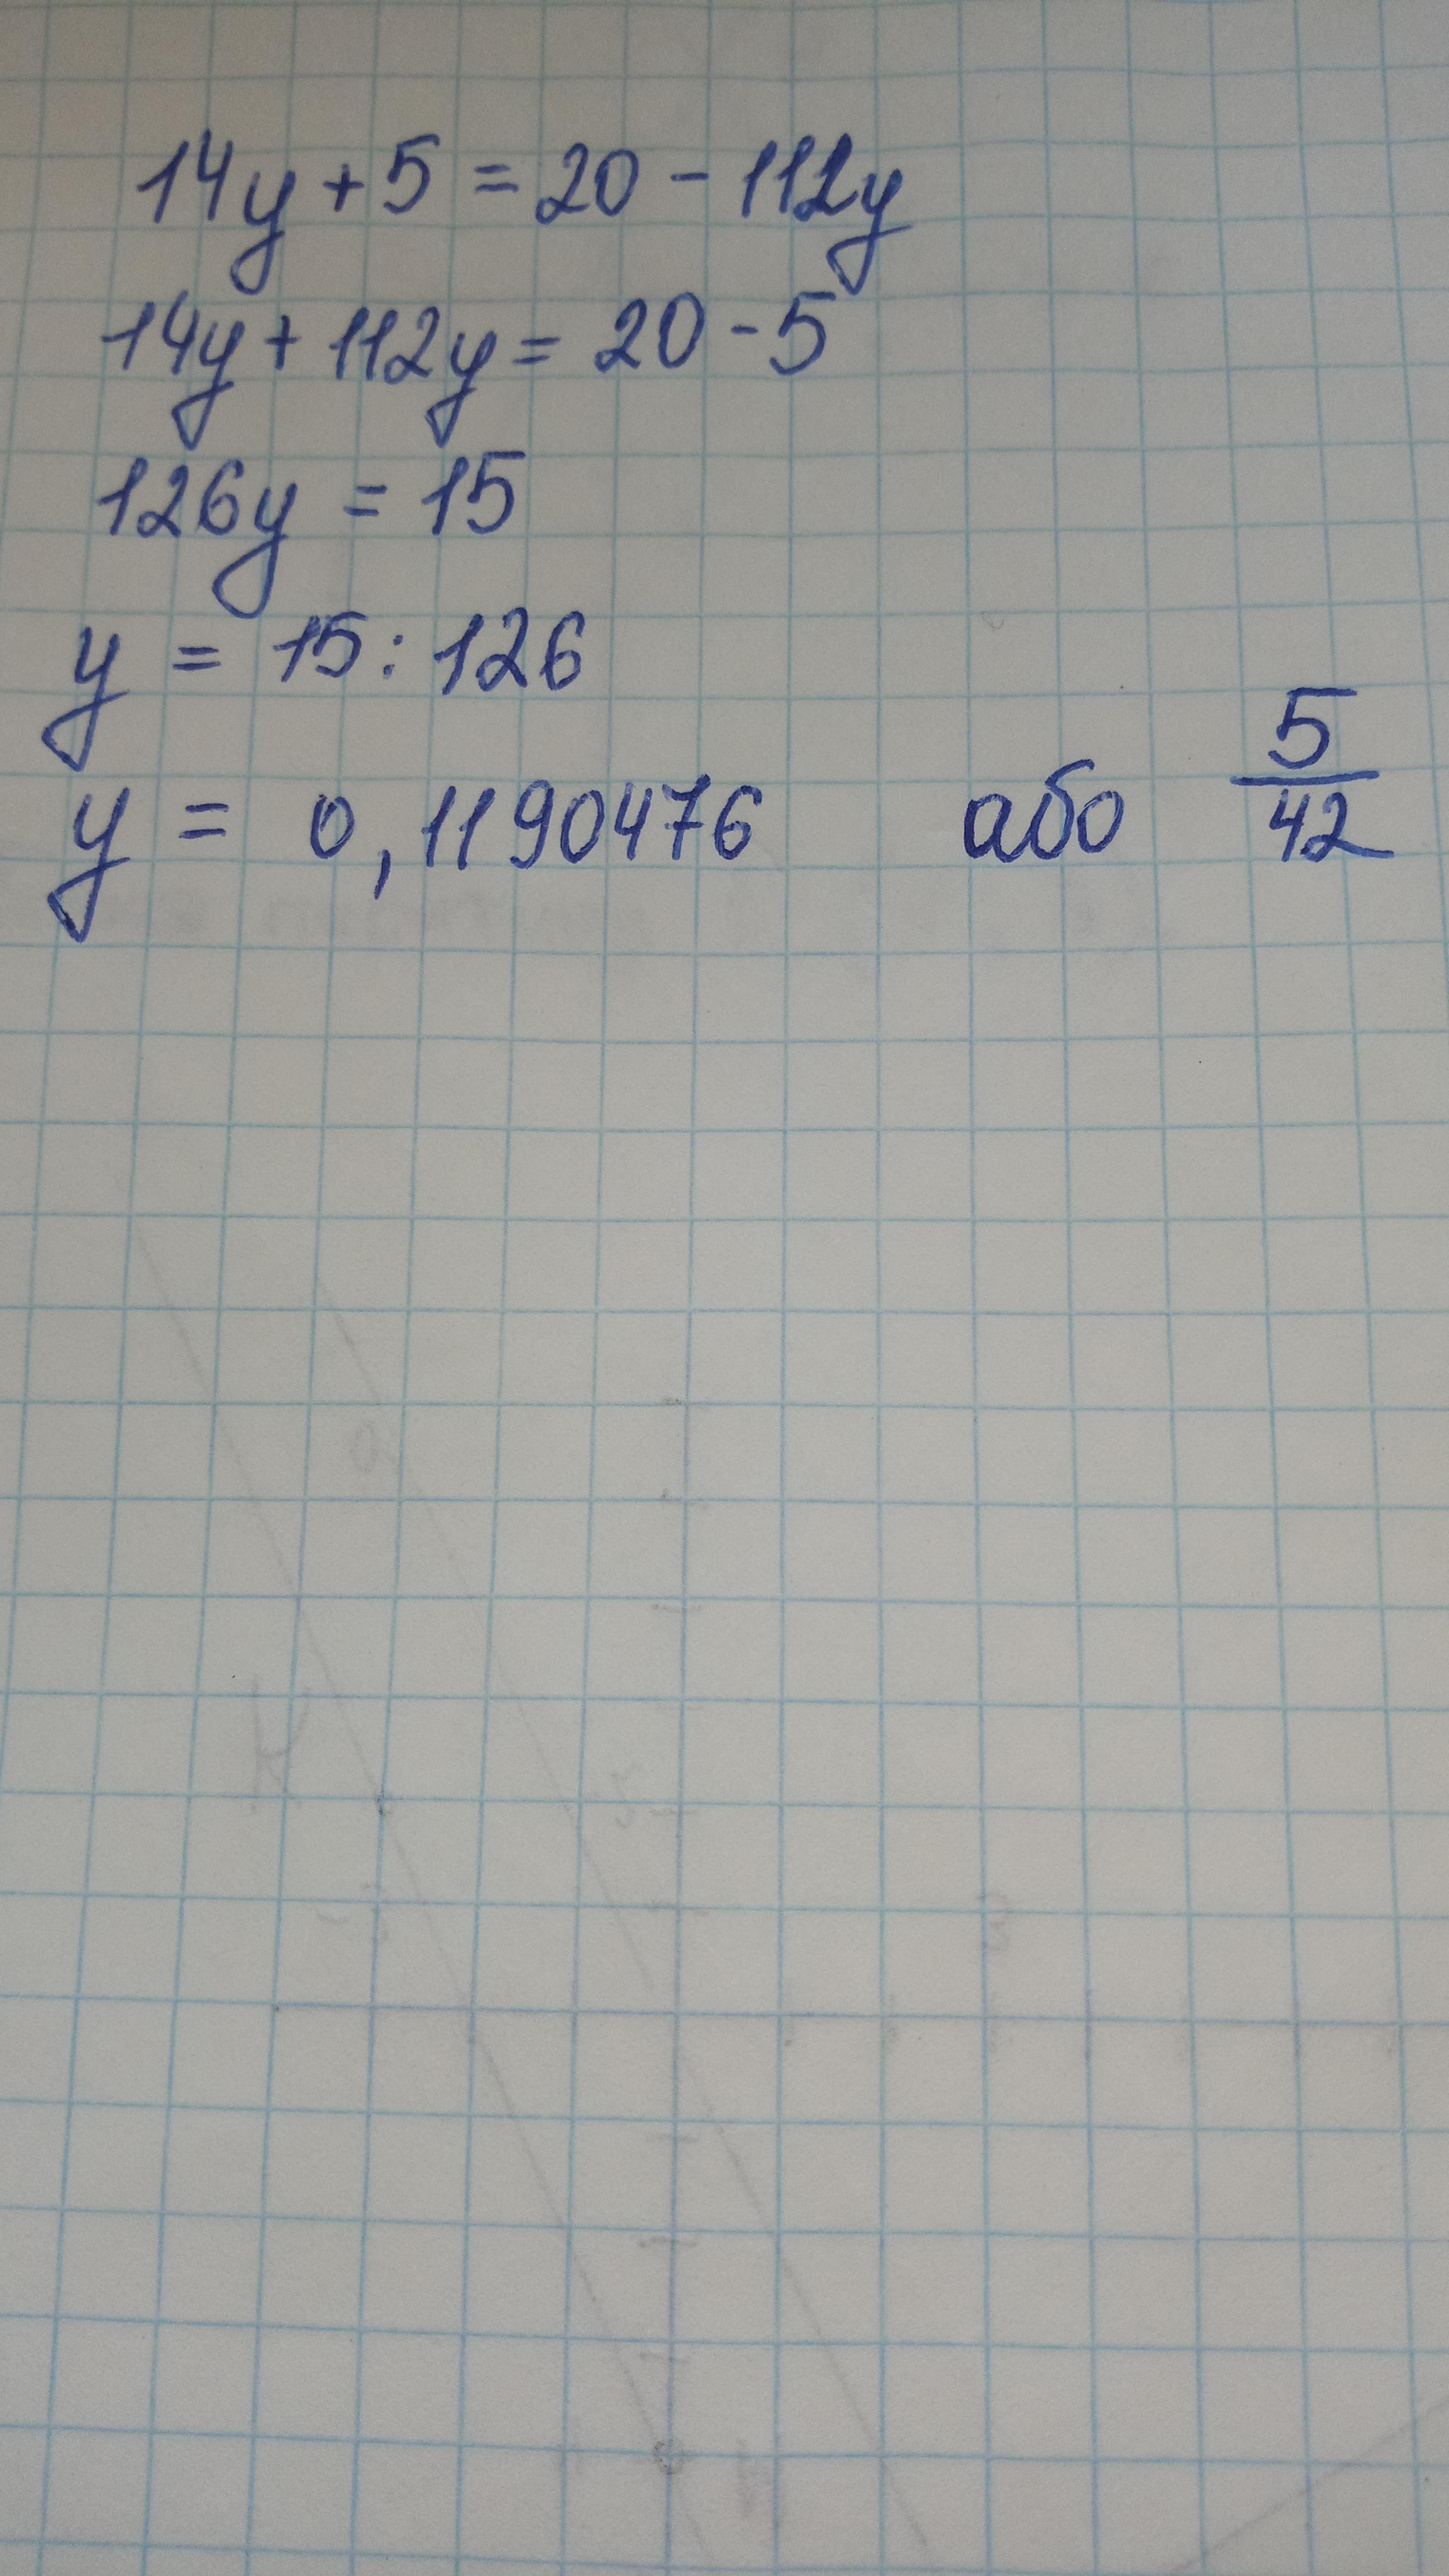 14y + 5 = 20 - 112y
14y + 112y = 20 - 5
126y = 15
y = 15 : 126
y = 0,1190476 або 5/42